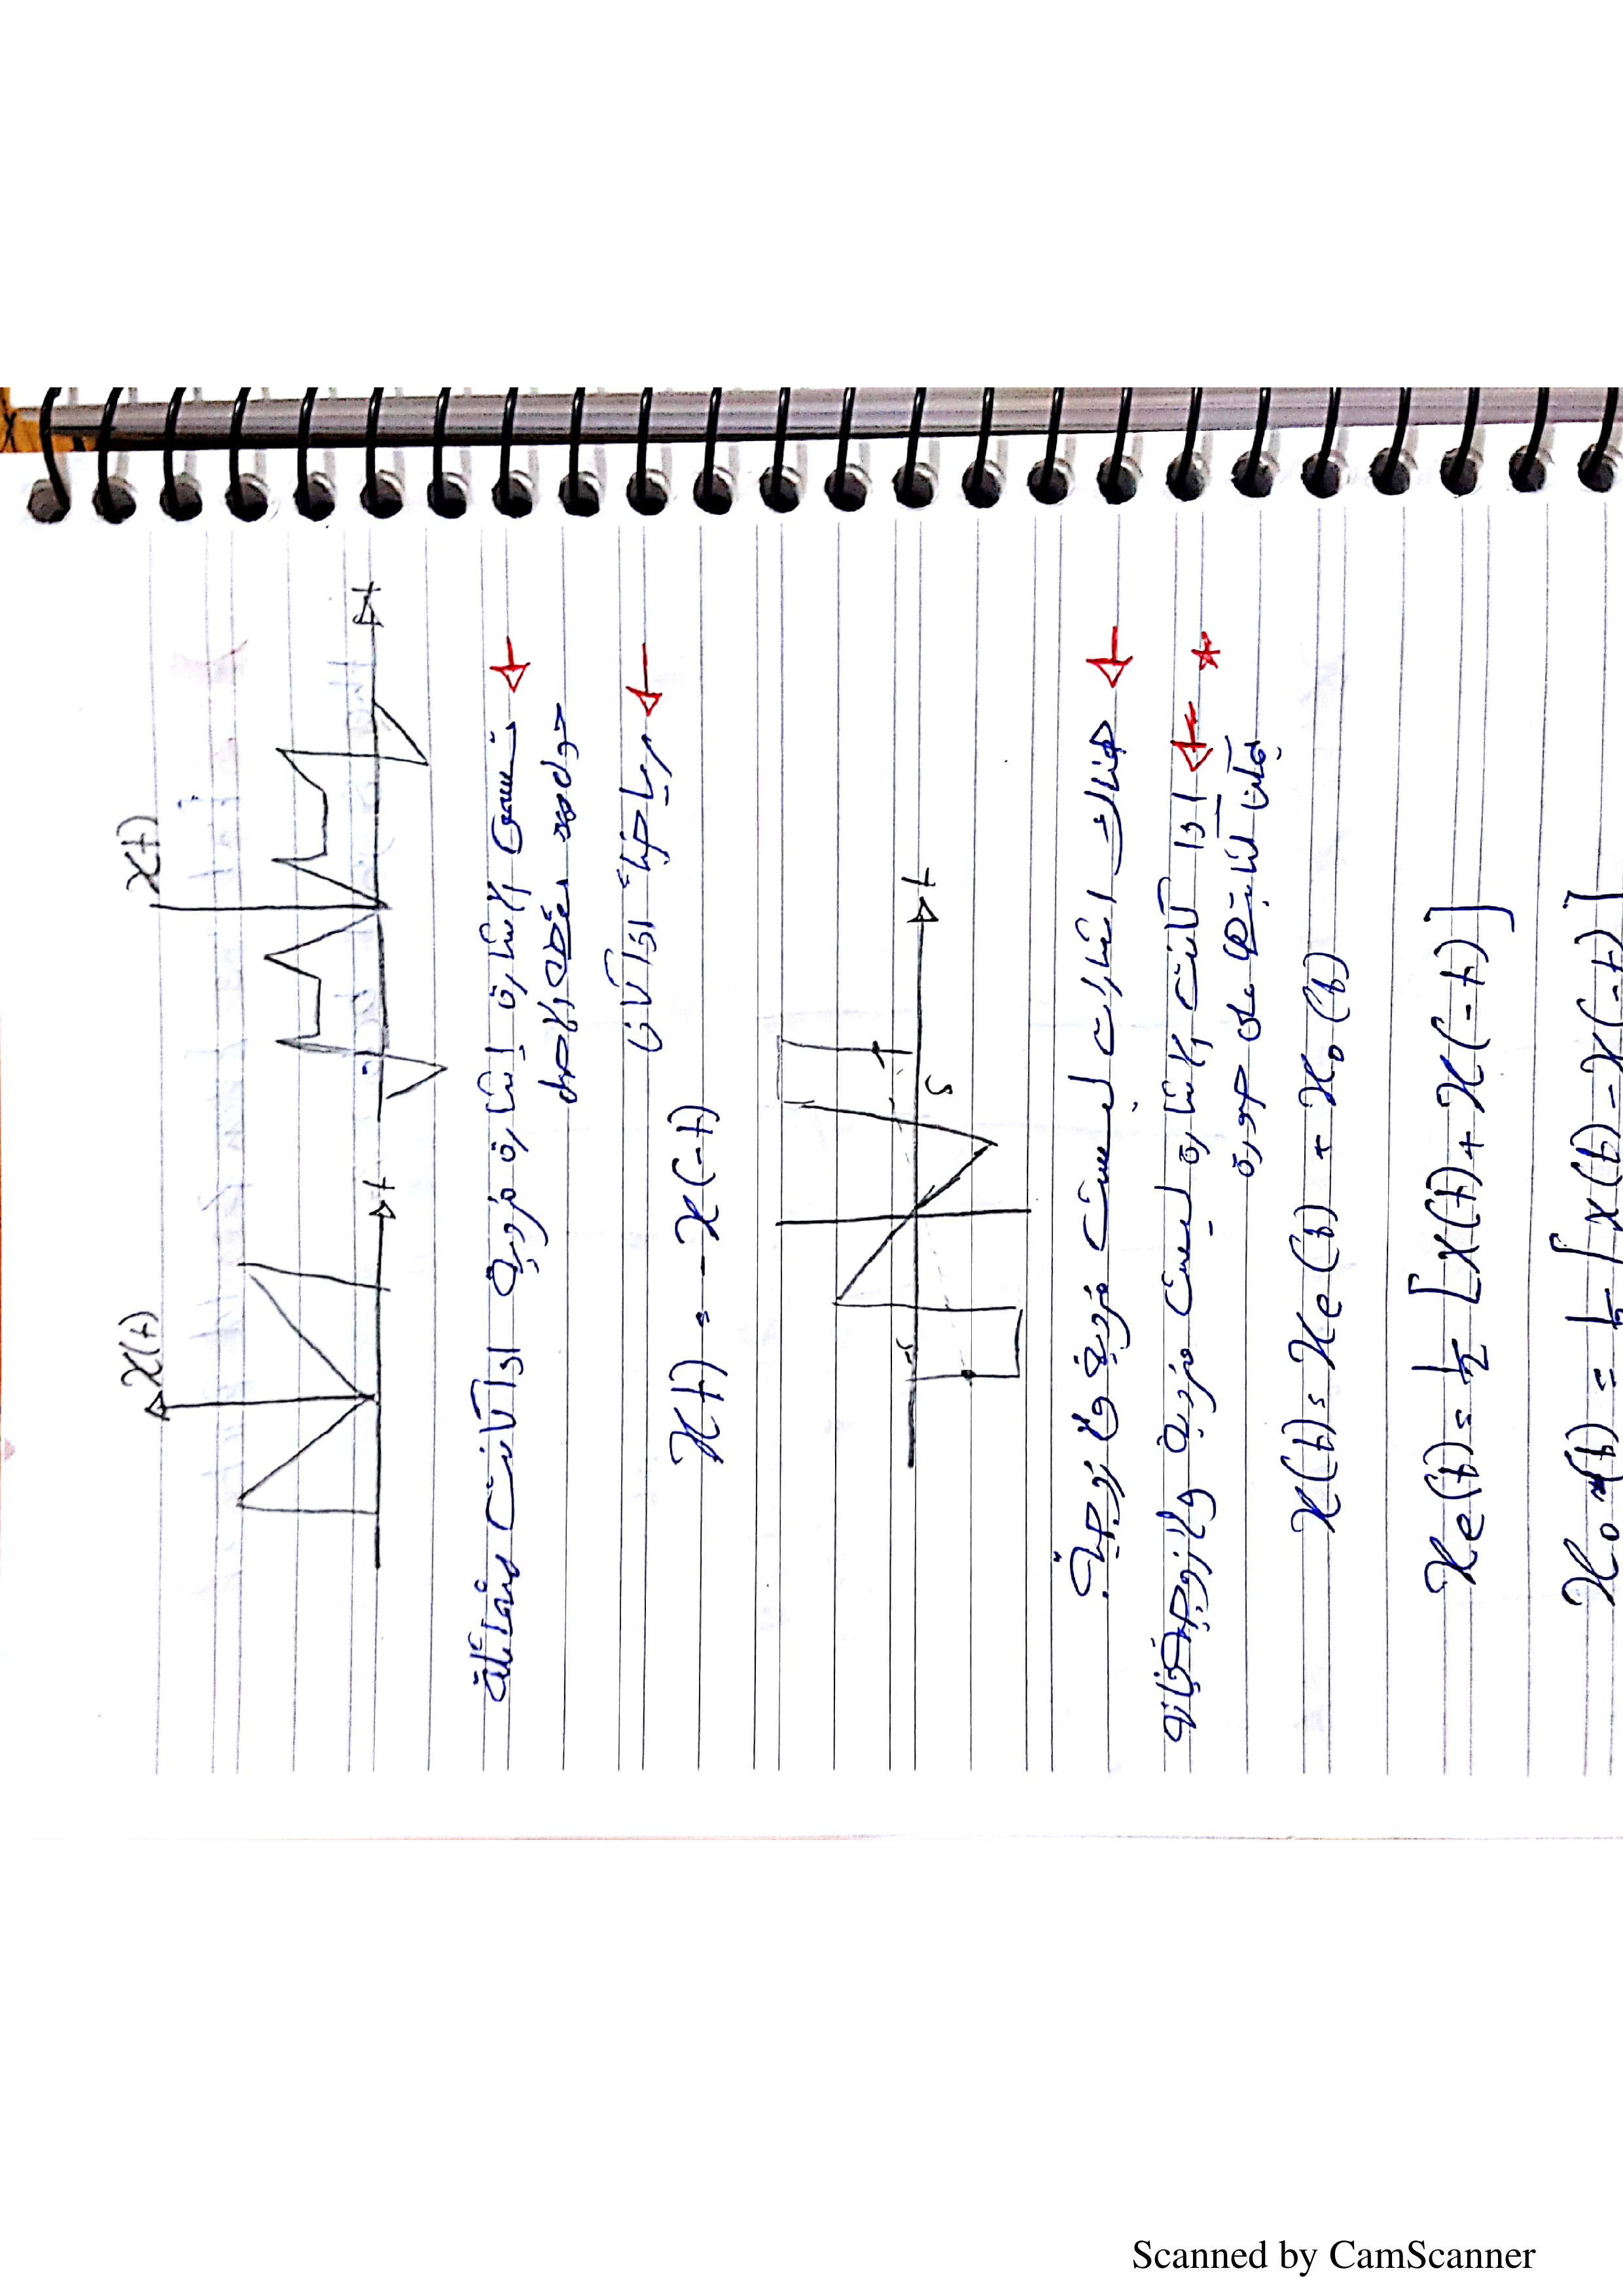 x(t)
x(t)
t
t
تسمى الإشارة إشارة فردية اذا كانت متماثلة
حول نقطة الأصل
رياضياً اذا كان
x(t) = - x(-t)
t
هناك اشارات ليست فردية ولا زوجية.
اذا كانت الإشارة ليست فردية ولا زوجية فإنه
يمكن كتابتها على صورة
x(t) = xe(t) + xo(t)
xe(t) = 1/2 [x(t) + x(-t)]
xo(t) = 1/2 [x(t) - x(-t)]
Scanned by CamScanner